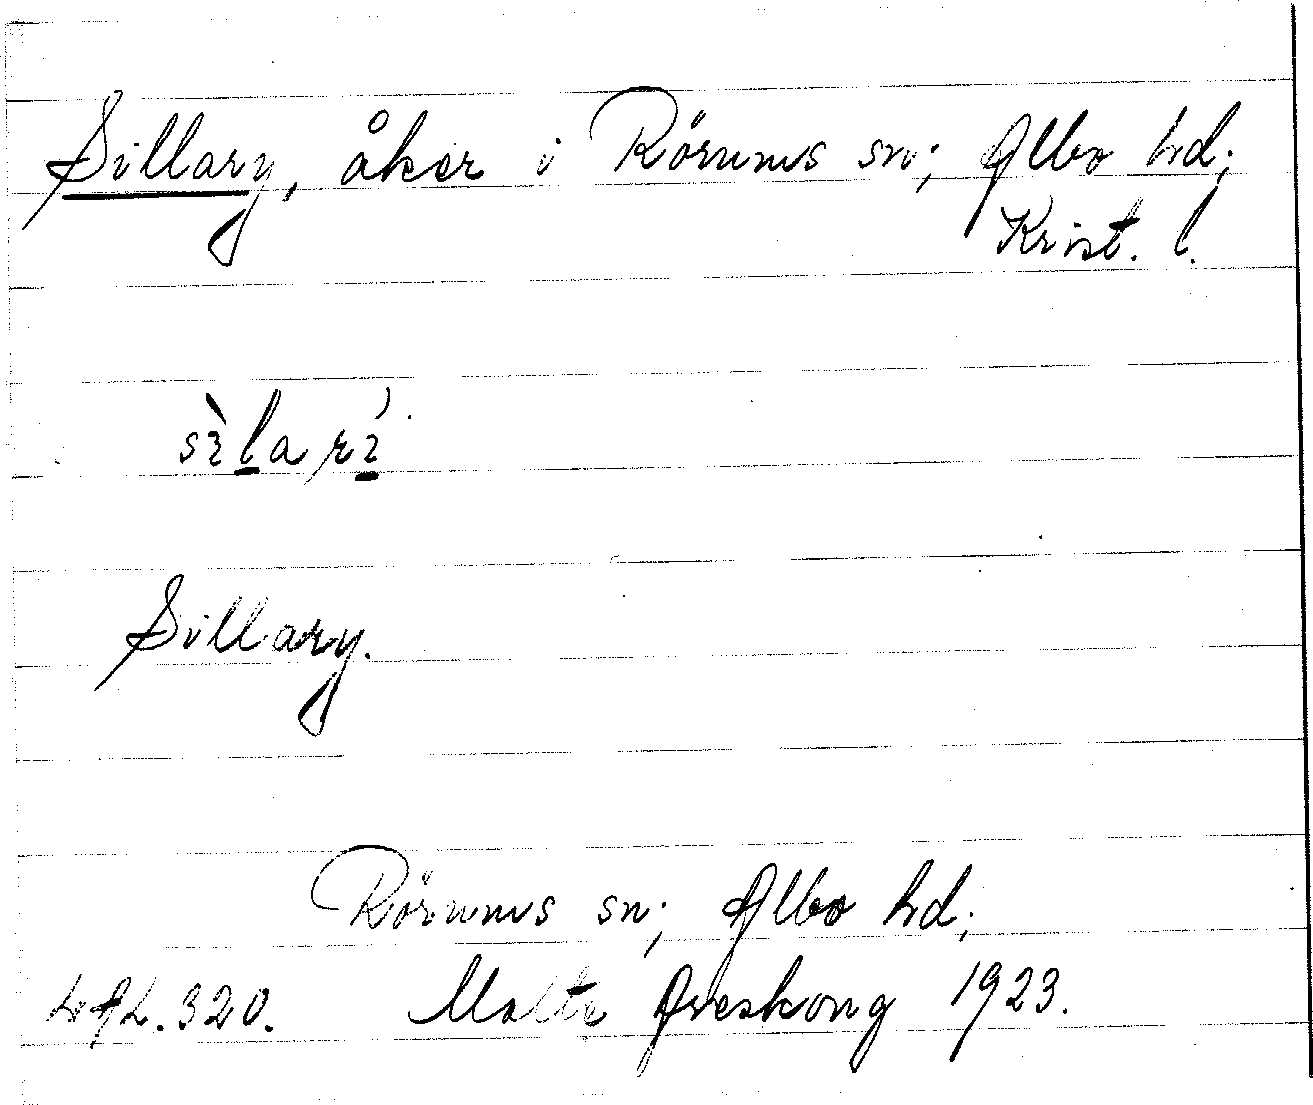 Sillary, åker i Rörums sn; Albo hd;
Krist. l.
sìlarí
Sillary.
Rörums sn; Albo hd;
LAL. 320. Malte Areskoug 1923.